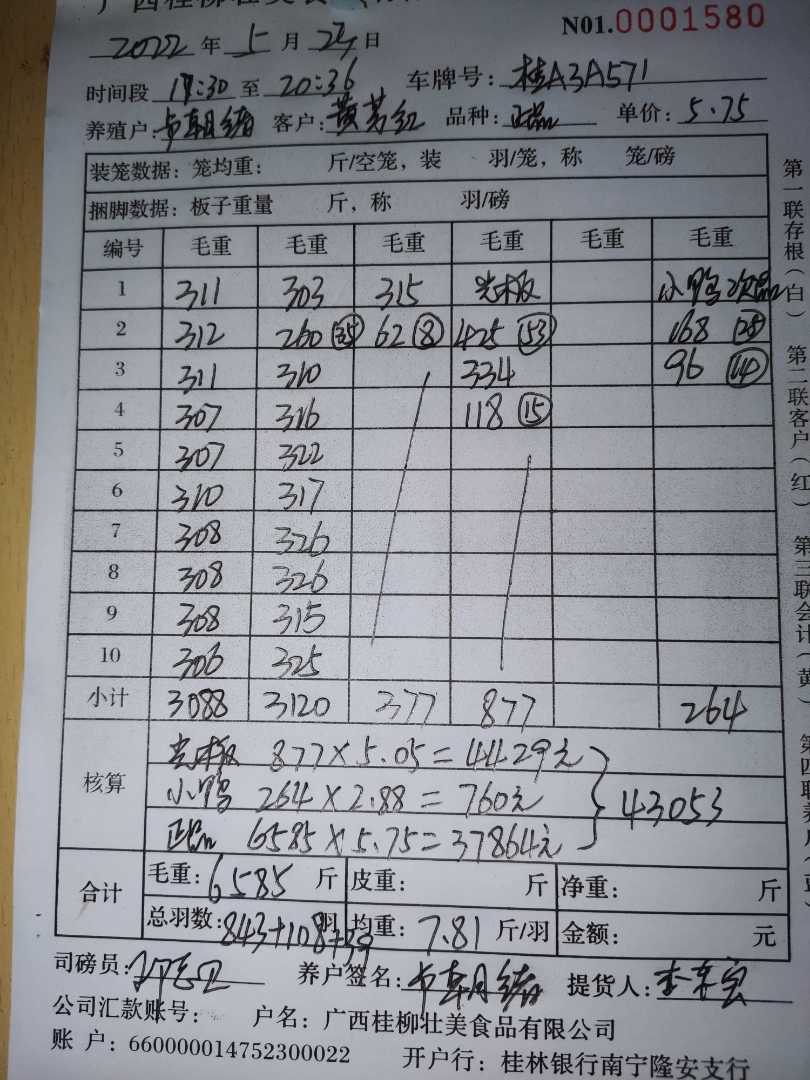 N01.0001580
2022 年 5 月 24 日
时间段 17:30 至 20:36 车牌号: 桂A3A571
养殖户: 韦朝绪 客户: 黄芳红 品种: 正品 单价: 5.75
装笼数据: 笼均重: 斤/空笼, 装 羽/笼, 称 笼/磅
捆脚数据: 板子重量 斤, 称 羽/磅
编号 毛重 毛重 毛重 毛重 毛重 毛重
1 311 303 315 光板 小鸭次品
2 312 260 (35) 62 (8) 425 (53) 168 (25)
3 311 310 334 96 (14)
4 307 316 118 (15)
5 307 322
6 310 317
7 308 326
8 308 326
9 308 315
10 306 325
小计 3088 3120 377 877 264
核算
光板 877×5.05=4429元
小鸭 264×2.88=760元
正品 6585×5.75=37864元
43053
合计
毛重: 6585 斤 皮重: 斤 净重: 斤
总羽数: 843+108+39 羽 均重: 7.81 斤/羽 金额: 元
司磅员: 养户签名: 韦朝绪 提货人:
公司汇款账号: 户名: 广西桂柳壮美食品有限公司
账 户: 660000014752300022 开户行: 桂林银行南宁隆安支行
第一联存根(白) 第二联客户(红) 第三联会计(黄) 第四联养户(蓝)